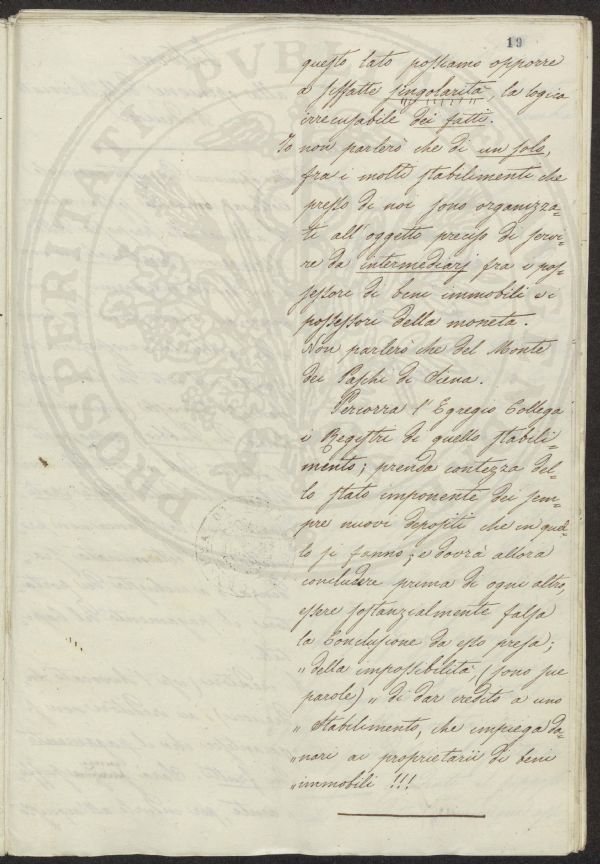 19
questo lato possiamo opporre
a siffatte singolarità, la logica
irrecusabile dei fatti.
Io non parlerò che di un solo,
fra i molti stabilimenti che
presso di noi sono organizza-
ti all'oggetto preciso di servi-
re da intermediarj fra i pos-
sessori di beni immobili e i
possessori della moneta.
Non parlerò che del Monte
dei Paschi di Siena.
Percorra l'Egregio Collega
i Registri di quello stabili-
mento; prenda contezza del-
lo stato imponente dei sem-
pre nuovi depositi che in quel-
lo si fanno; e dovrà allora
concludere prima di ogni altro,
essere sostanzialmente falsa
la Conclusione da esso presa;
"della impossibilità, (sono sue
parole) " di dar credito a uno
" Stabilimento, che impiega da-
"nari ai proprietarii di beni
"immobili !!!